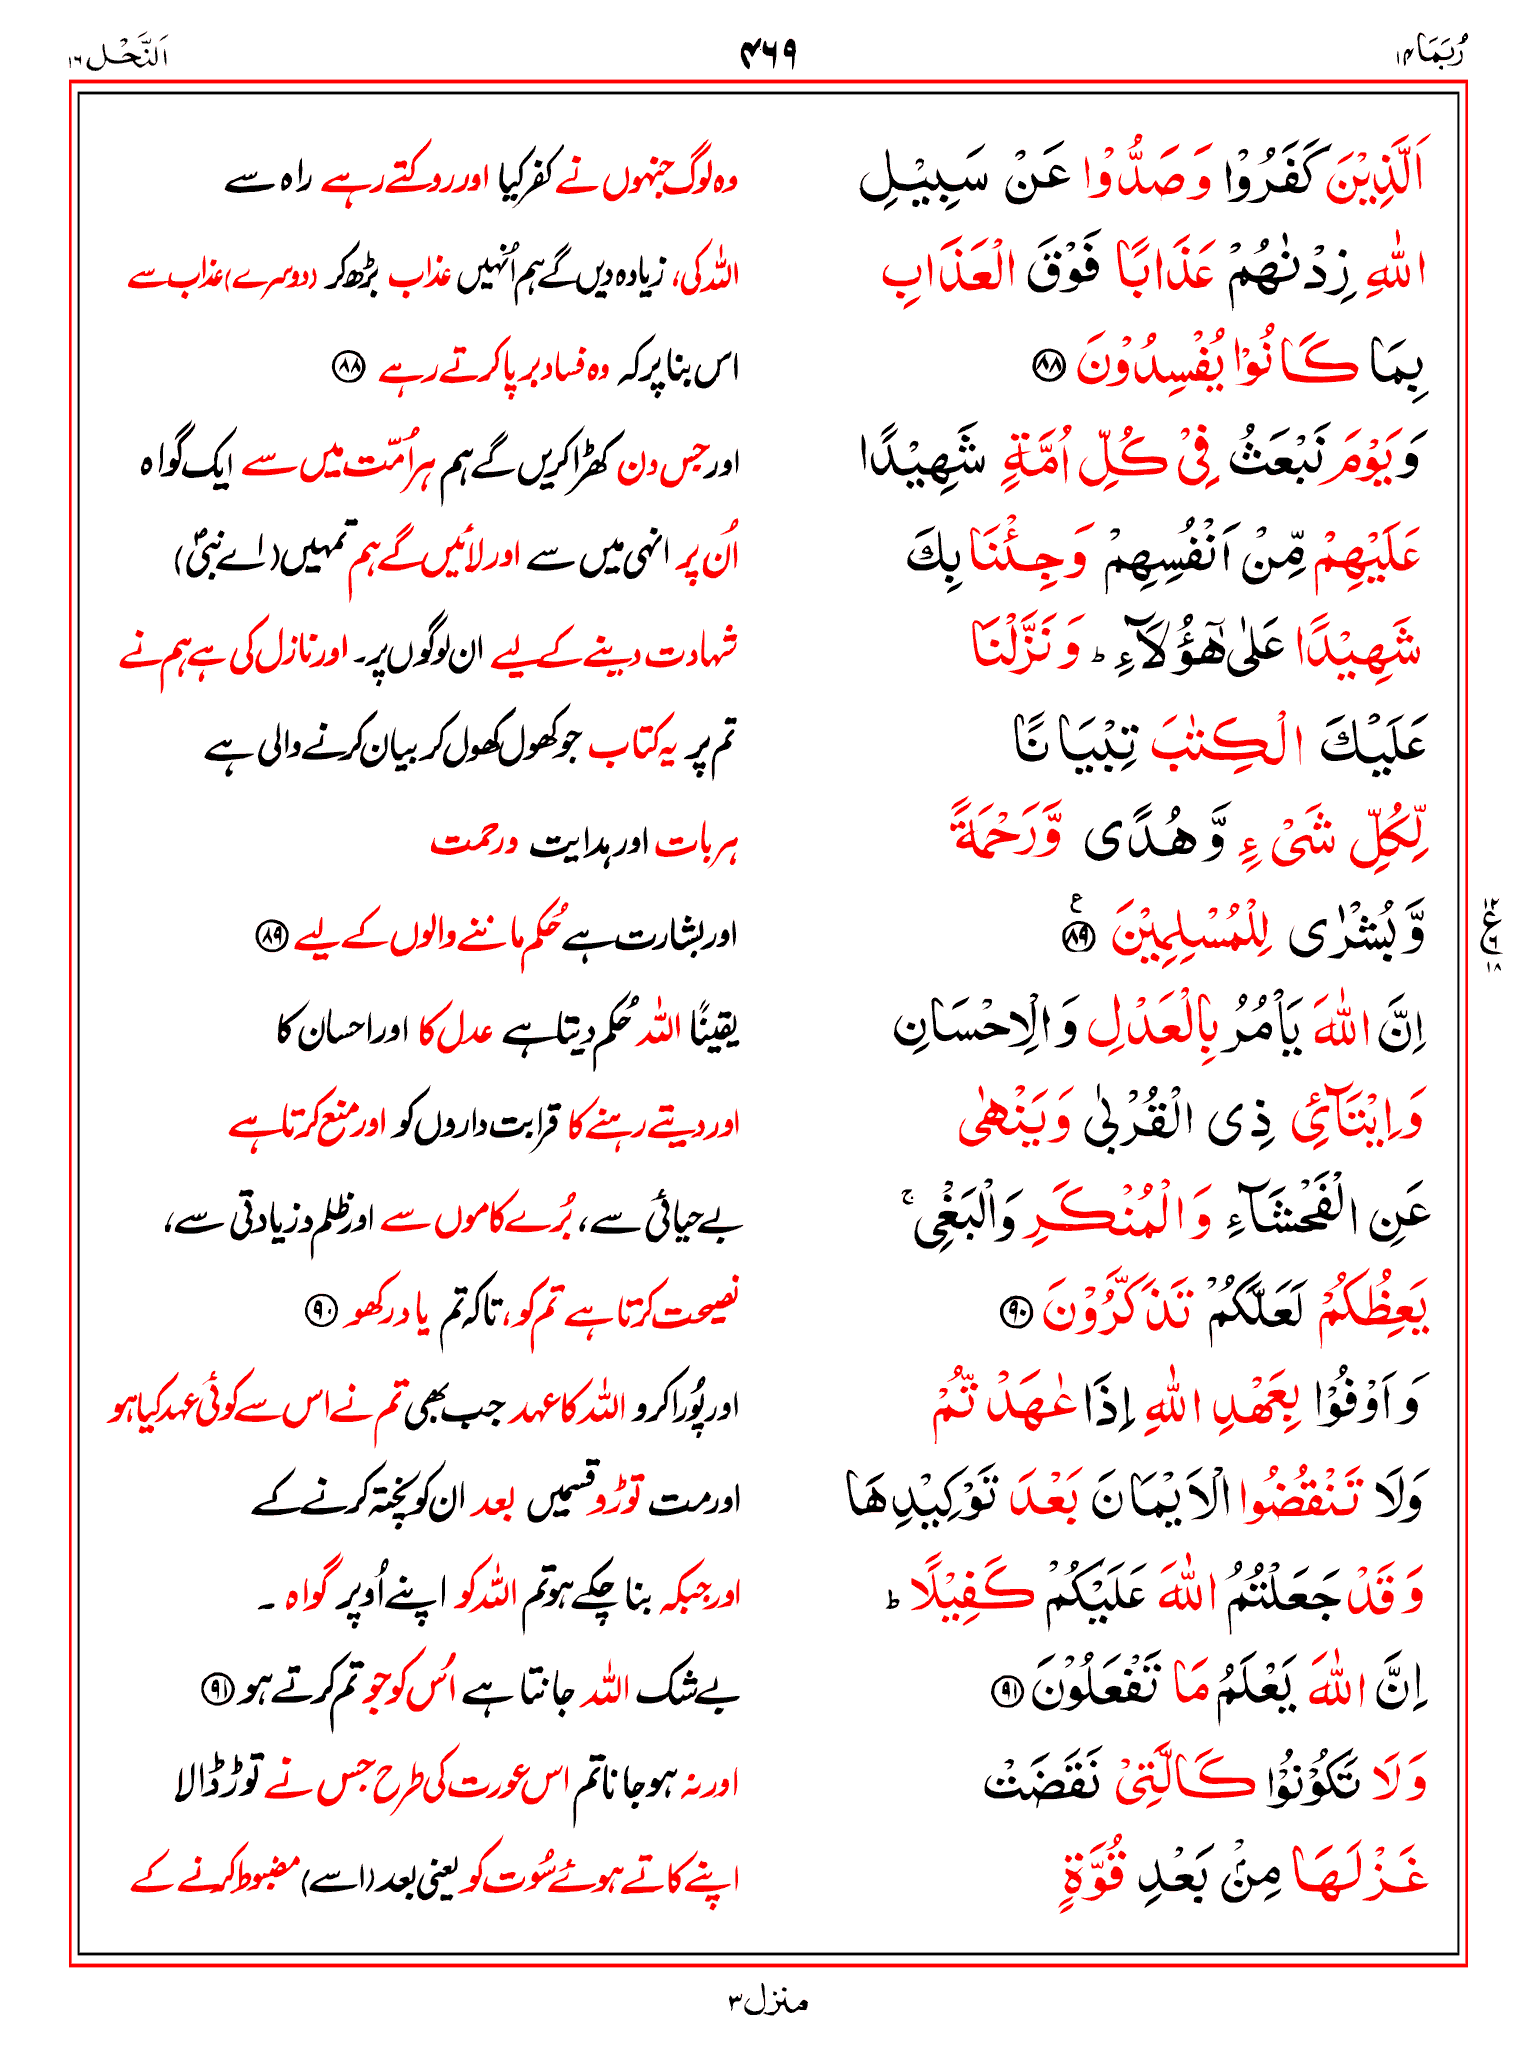 رُبَمَا ۱۴
۴۶۹
اَلنَّحْل ۱۶
اَلَّذِيْنَ كَفَرُوْا وَصَدُّوْا عَنْ سَبِيْلِ
وہ لوگ جنہوں نے کفر کیا اور روکتے رہے راہ سے
اللّٰهِ زِدْنٰهُمْ عَذَابًا فَوْقَ الْعَذَابِ
اللہ کی، زیادہ دیں گے ہم اُنہیں عذاب بڑھ کر (دوسرے) عذاب سے
بِمَا كَانُوْا يُفْسِدُوْنَ ۸۸
اس بنا پر کہ وہ فساد برپا کرتے رہے ۸۸
وَيَوْمَ نَبْعَثُ فِيْ كُلِّ اُمَّةٍ شَهِيْدًا
اور جس دن کھڑا کریں گے ہم ہر اُمّت میں سے ایک گواہ
عَلَيْهِمْ مِّنْ اَنْفُسِهِمْ وَجِئْنَا بِكَ
اُن پر انہی میں سے اور لائیں گے ہم تمہیں (اے نبیؐ)
شَهِيْدًا عَلٰى هٰٓؤُلَآءِ ؕ وَنَزَّلْنَا
شہادت دینے کے لیے ان لوگوں پر۔ اور نازل کی ہے ہم نے
عَلَيْكَ الْكِتٰبَ تِبْيَانًا
تم پر یہ کتاب جو کھول کھول کر بیان کرنے والی ہے
لِّكُلِّ شَيْءٍ وَّهُدًى وَّرَحْمَةً
ہر بات اور ہدایت ورحمت
وَّبُشْرٰى لِلْمُسْلِمِيْنَ ۸۹ ع
اور بشارت ہے حُکم ماننے والوں کے لیے ۸۹
۱۲ ع ۶ ۱۸
اِنَّ اللّٰهَ يَاْمُرُ بِالْعَدْلِ وَالْاِحْسَانِ
یقینًا اللہ حُکم دیتا ہے عدل کا اور احسان کا
وَاِيْتَآئِ ذِي الْقُرْبٰى وَيَنْهٰى
اور دیتے رہنے کا قرابت داروں کو اور منع کرتا ہے
عَنِ الْفَحْشَآءِ وَالْمُنْكَرِ وَالْبَغْيِ ۚ
بے حیائی سے، بُرے کاموں سے اور ظلم و زیادتی سے،
يَعِظُكُمْ لَعَلَّكُمْ تَذَكَّرُوْنَ ۹۰
نصیحت کرتا ہے تم کو، تاکہ تم یاد رکھو ۹۰
وَاَوْفُوْا بِعَهْدِ اللّٰهِ اِذَا عٰهَدْتُّمْ
اور پُورا کرو اللہ کا عہد جب بھی تم نے اس سے کوئی عہد کیا ہو
وَلَا تَنْقُضُوا الْاَيْمَانَ بَعْدَ تَوْكِيْدِهَا
اور مت توڑو قسمیں بعد ان کو پختہ کرنے کے
وَقَدْ جَعَلْتُمُ اللّٰهَ عَلَيْكُمْ كَفِيْلًا ؕ
اور جبکہ بنا چکے ہو تم اللہ کو اپنے اُوپر گواہ ۔
اِنَّ اللّٰهَ يَعْلَمُ مَا تَفْعَلُوْنَ ۹۱
بے شک اللہ جانتا ہے اُس کو جو تم کرتے ہو ۹۱
وَلَا تَكُوْنُوْا كَالَّتِيْ نَقَضَتْ
اور نہ ہو جانا تم اس عورت کی طرح جس نے توڑ ڈالا
غَزْلَهَا مِنْۢ بَعْدِ قُوَّةٍ
اپنے کاتے ہوئے سُوت کو یعنی بعد (اسے) مضبوط کرنے کے
منزل ۳